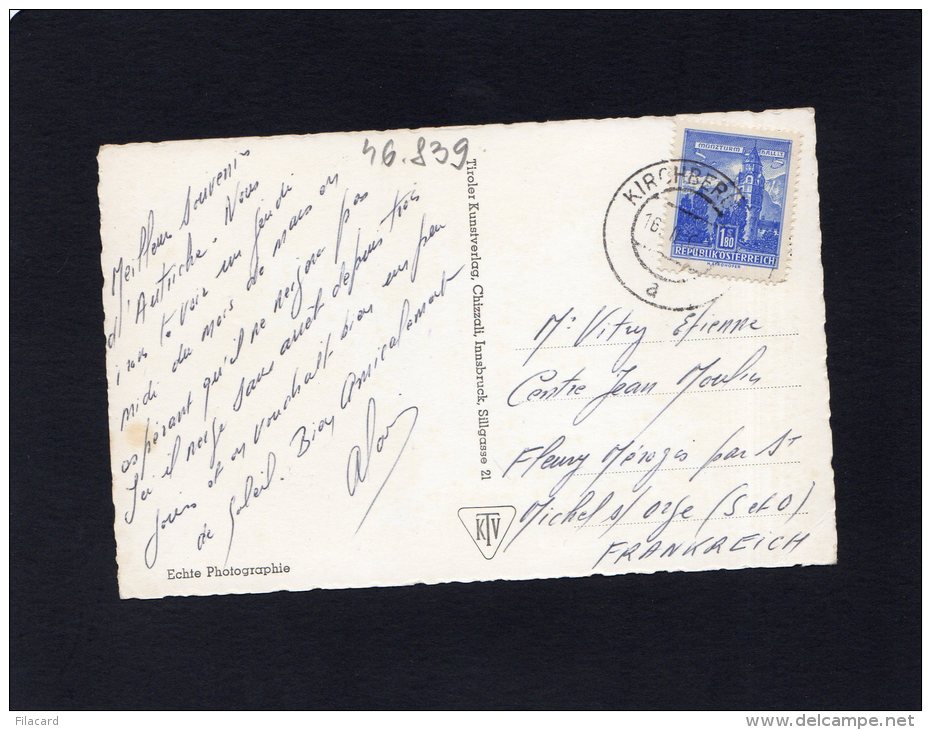 46.839
Meilleur Souvenir
d'Autriche. Nous
irons te voir un jeudi
midi du mois de mars en
espérant qu'il ne neigera pas
Ici il neige sans arrêt depuis trois
jours et on voudrait bien un peu
de Soleil. Bien Amicalement
Echte Photographie
Tiroler Kunstverlag, Chizzali, Innsbruck, Sillgasse 21
KTV
KIRCHBERG
16.
a
MÜNZTURM HALL I.T.
1S80
REPUBLIK ÖSTERREICH
Mr Vitry Etienne
Centre Jean Moulin
Fleury Mérogis par St
Michel s/ Orge (S et O)
FRANKREICH
Filacard
www.delcampe.net